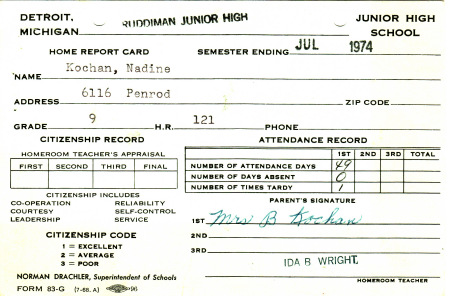 DETROIT, RUDDIMAN JUNIOR HIGH JUNIOR HIGH
MICHIGAN SCHOOL
HOME REPORT CARD SEMESTER ENDING JUL 1974
NAME Kochan, Nadine
ADDRESS 6116 Penrod ZIP CODE
GRADE 9 H.R. 121 PHONE
CITIZENSHIP RECORD ATTENDANCE RECORD
HOMEROOM TEACHER'S APPRAISAL
FIRST SECOND THIRD FINAL
1ST 2ND 3RD TOTAL
NUMBER OF ATTENDANCE DAYS 49
NUMBER OF DAYS ABSENT 0
NUMBER OF TIMES TARDY 1
CITIZENSHIP INCLUDES
CO-OPERATION RELIABILITY
COURTESY SELF-CONTROL
LEADERSHIP SERVICE
PARENT'S SIGNATURE
1ST Mrs B Kochan
2ND
3RD
CITIZENSHIP CODE
1 = EXCELLENT
2 = AVERAGE
3 = POOR
IDA B WRIGHT
HOMEROOM TEACHER
NORMAN DRACHLER, Superintendent of Schools
FORM 83-G (7-68. A) 96